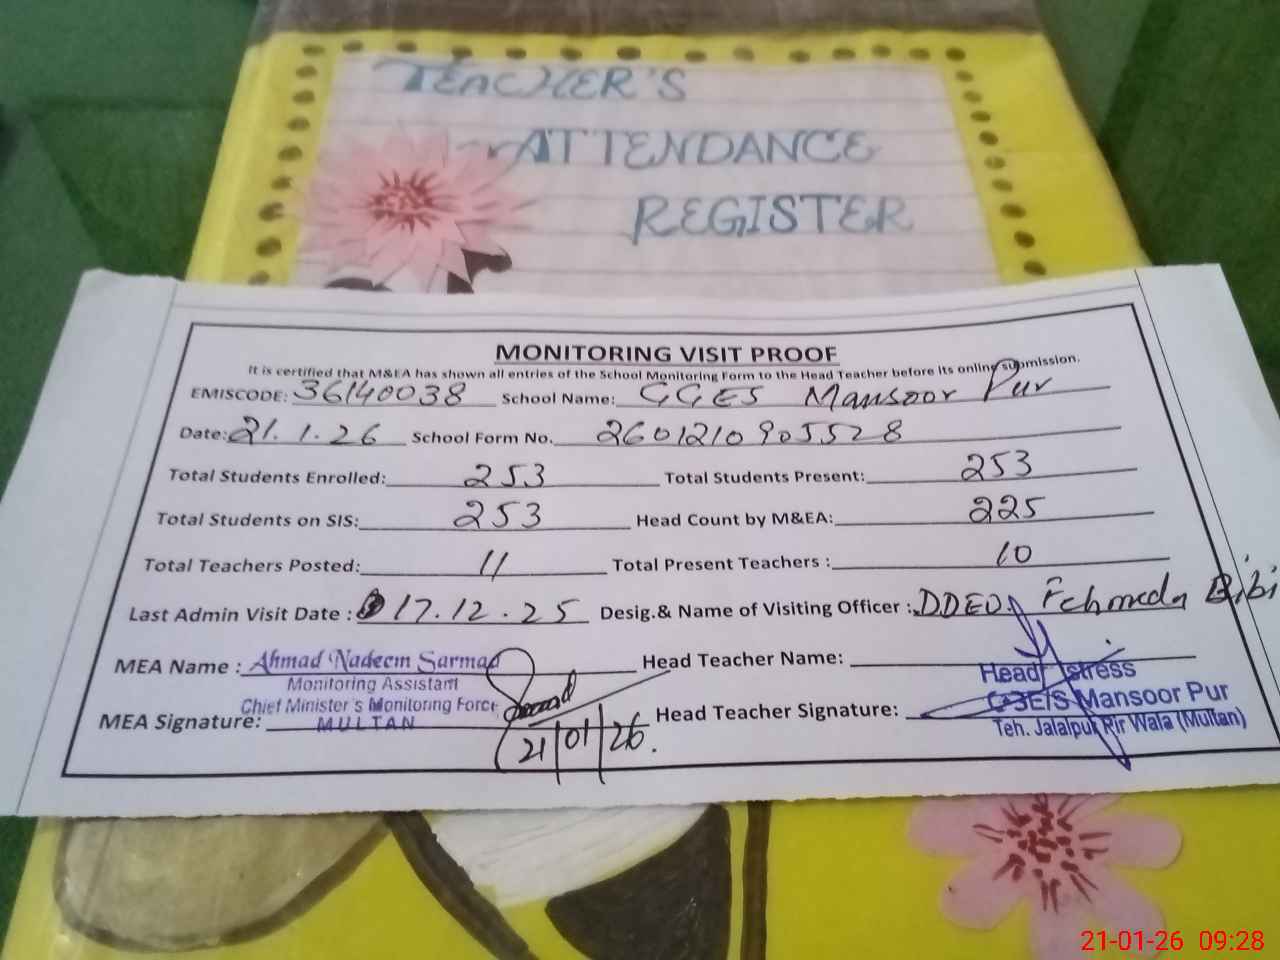 TEACHER'S
ATTENDANCE
REGISTER
MONITORING VISIT PROOF
It is certified that M&EA has shown all entries of the School Monitoring Form to the Head Teacher before its online submission.
EMISCODE: 36140038 School Name: GGES Mansoor Pur
Date: 21.1.26 School Form No. 2601210905528
Total Students Enrolled: 253 Total Students Present: 253
Total Students on SIS: 253 Head Count by M&EA: 225
Total Teachers Posted: 11 Total Present Teachers : 10
Last Admin Visit Date : 17.12.25 Desig.& Name of Visiting Officer : DDEO. Fehmeda Bibi
MEA Name : Ahmad Nadeem Sarmad Head Teacher Name:
Monitoring Assistant
Chief Minister's Monitoring Force
MULTAN
MEA Signature: 21/01/26. Head Teacher Signature:
Headmistress
GGE/S Mansoor Pur
Teh. Jalalpur Pir Wala (Multan)
21-01-26 09:28